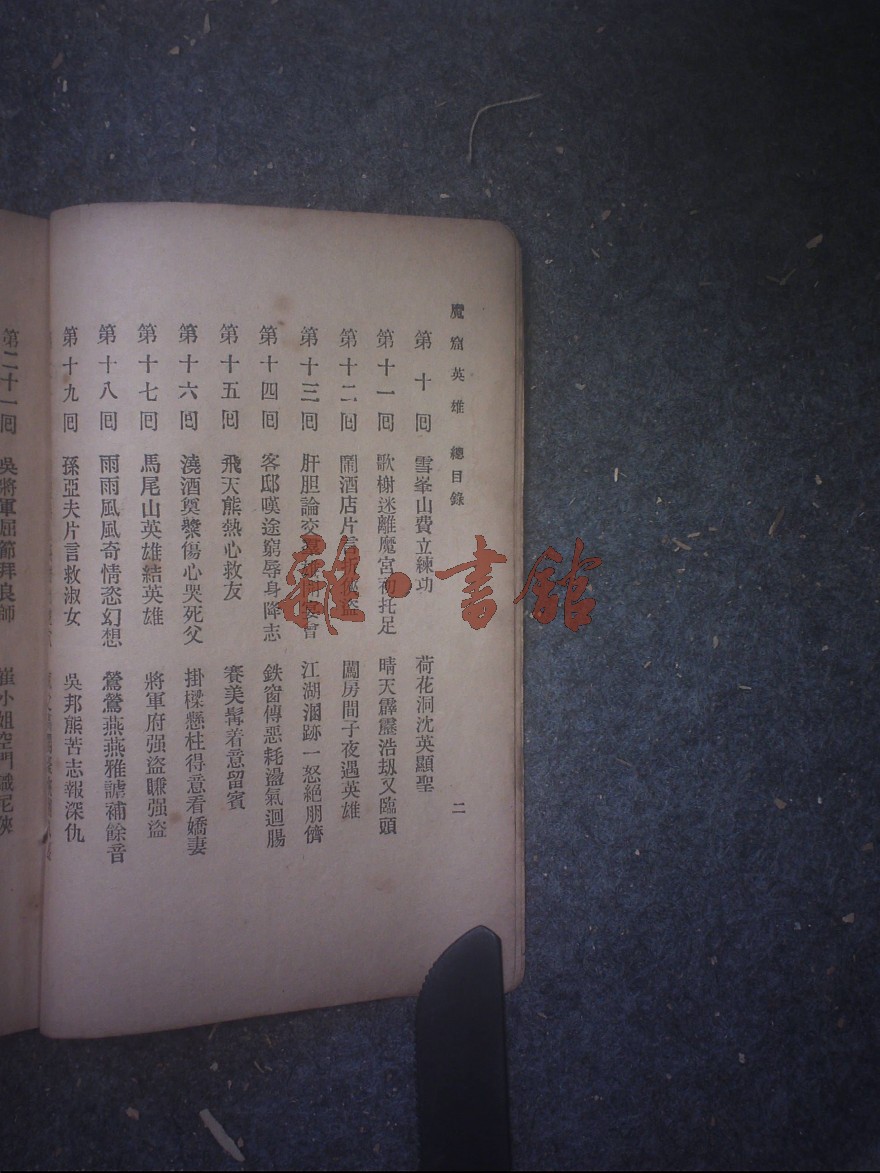 魔窟英雄 總目錄 二
第十回 雪峯山費立練功 荷花洞沈英顯聖
第十一回 歌榭迷離魔宮初托足 晴天霹靂浩刼又臨頭
第十二回 鬧酒店片言 盜 闖房間子夜遇英雄
第十三回 肝胆論交 江湖溷跡一怒絕朋儕
第十四回 客邸嘆途窮辱身降志 鉄窗傳惡耗盪氣迴腸
第十五回 飛天熊熱心救友 賽美髯着意留賓
第十六回 澆酒奠漿傷心哭死父 掛樑懸柱得意看嬌妻
第十七回 馬尾山英雄結英雄 將軍府强盜賺强盜
第十八回 雨雨風風奇情恣幻想 鶯鶯燕燕雅謔補餘音
第十九回 孫亞夫片言救淑女 吳邦熊苦志報深仇
第二十一回 吳將軍屈節拜良師 崔小姐空門識尼俠
雜·書館